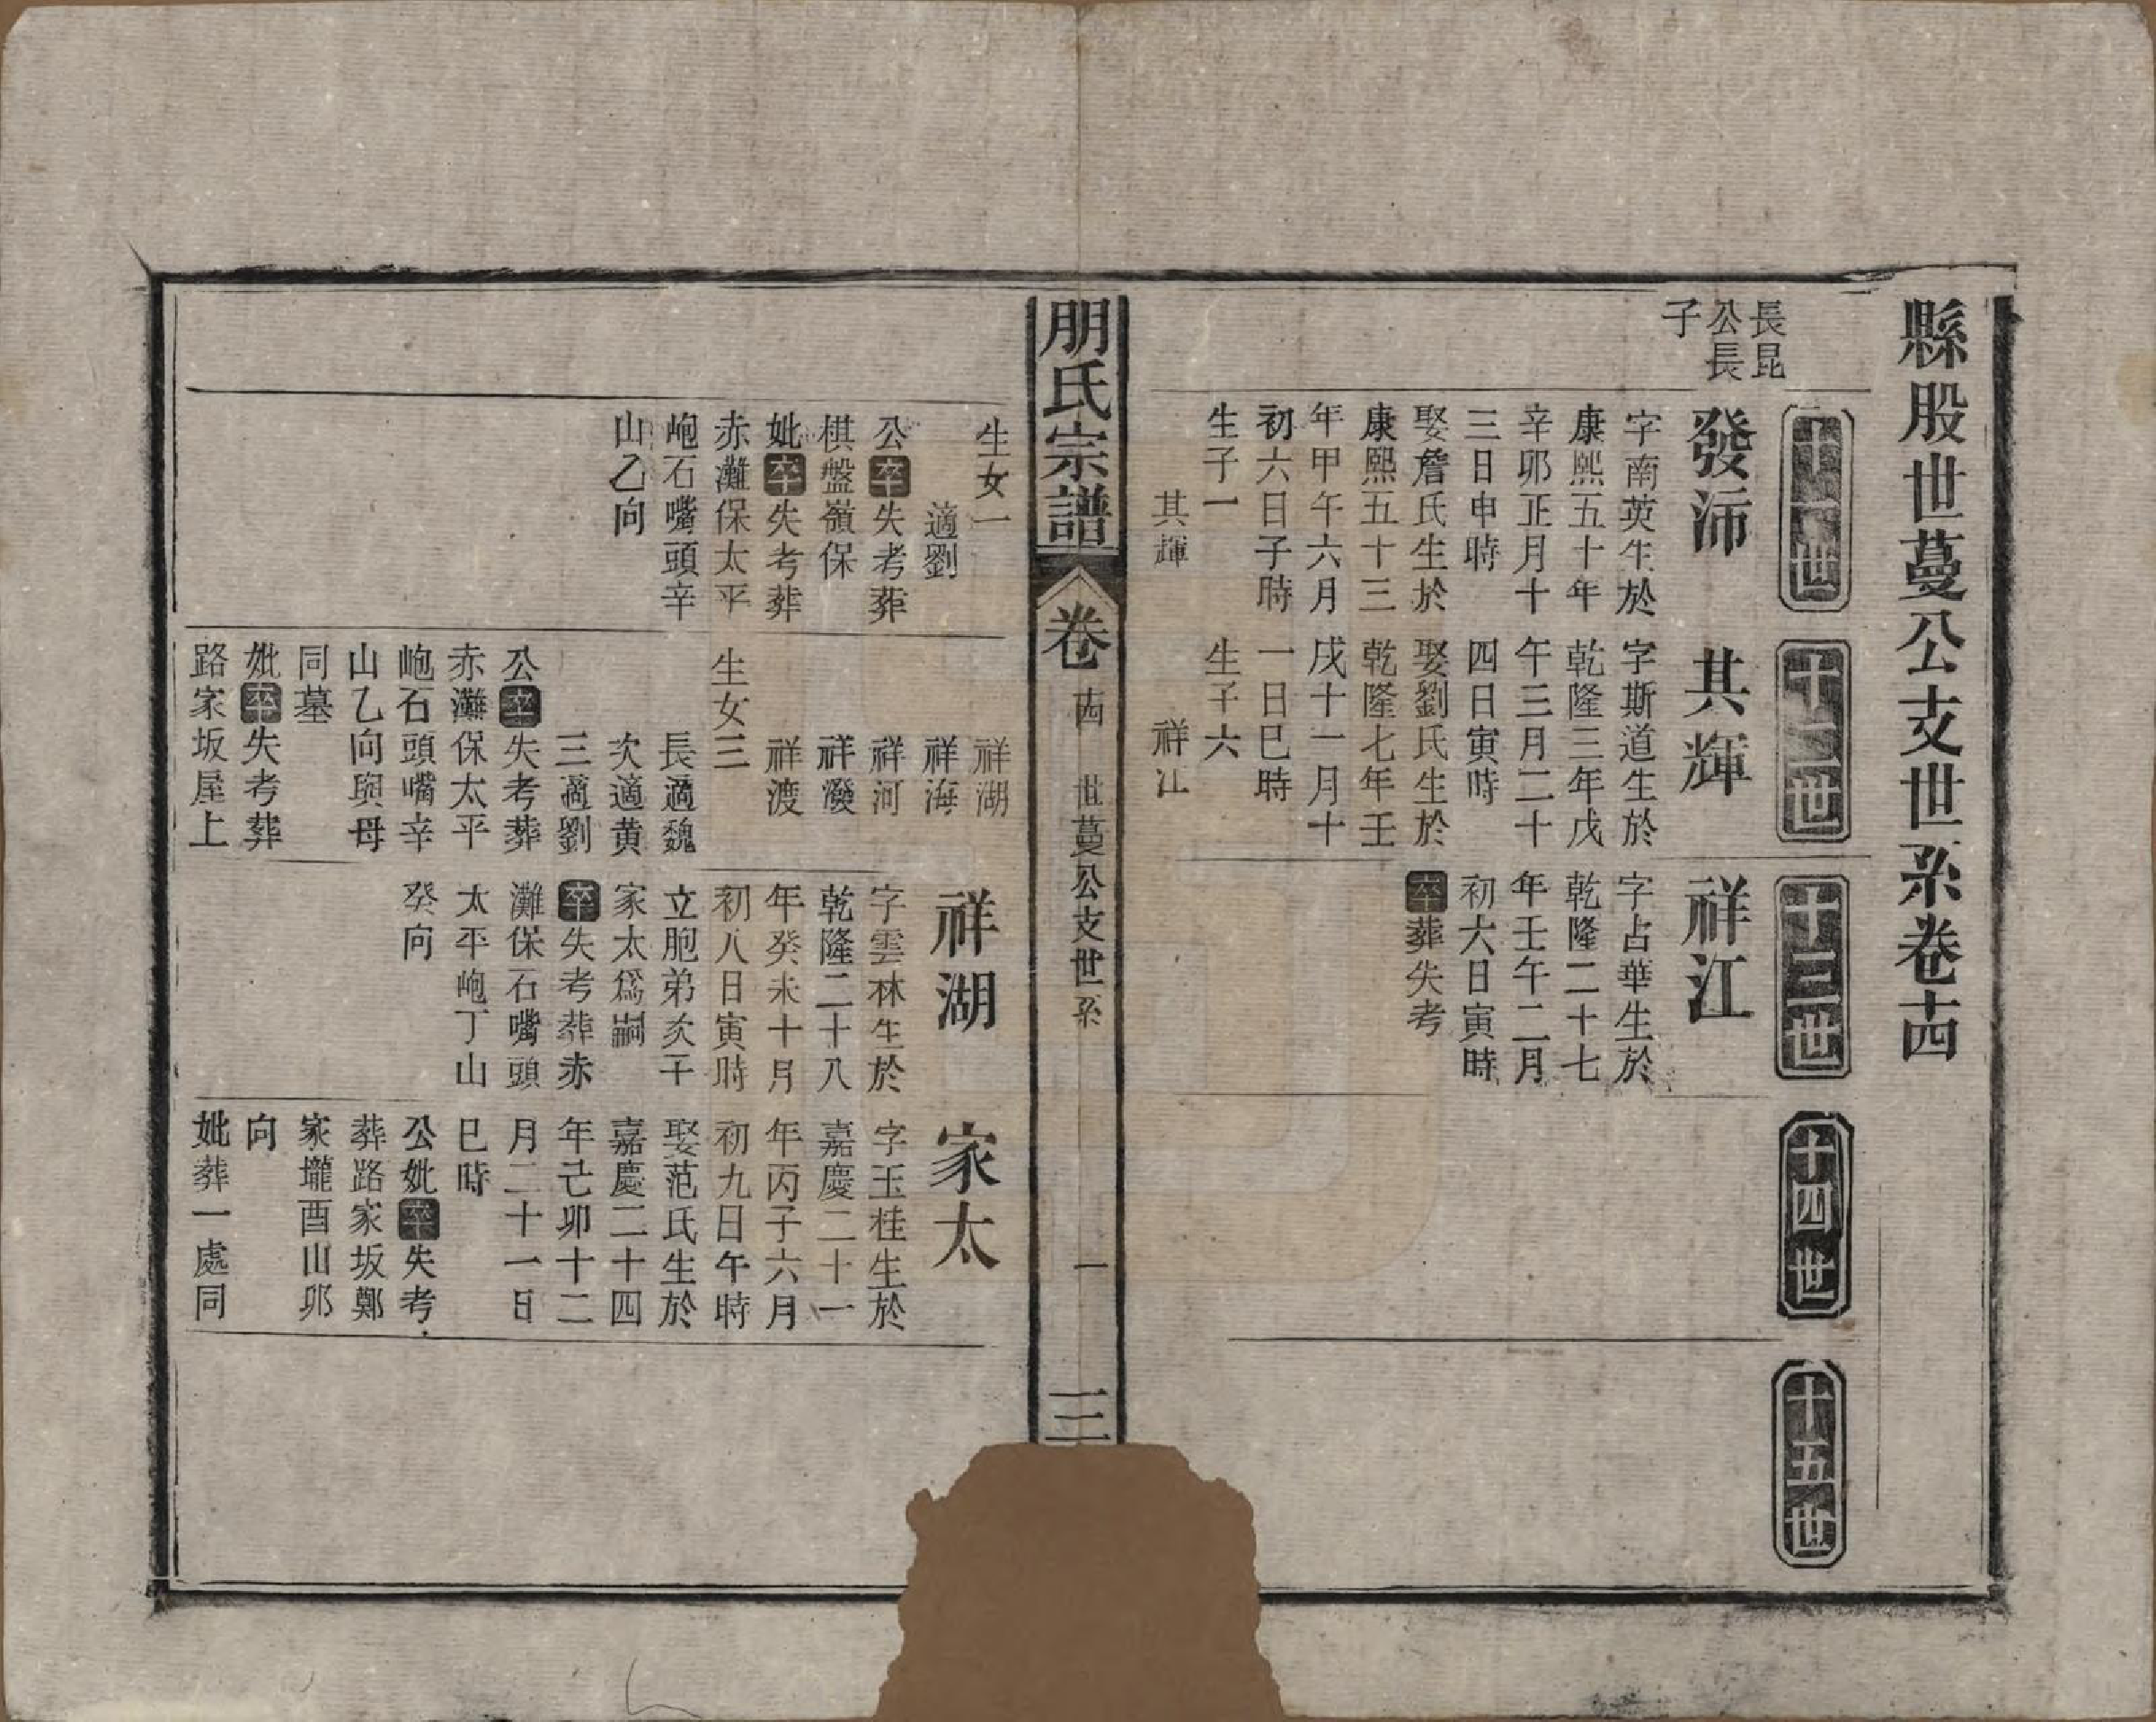 縣股世蔓公支世系卷十四
十一世
十二世
十三世
十四世
十五世
長昆
公長
子
發沛
字南英生於
康熙五十年
辛卯正月十
三日申時
娶詹氏生於
康熙五十三
年甲午六月
初六日子時
生子一
其輝
其輝
字斯道生於
乾隆三年戊
午三月二十
四日寅時
娶劉氏生於
乾隆七年壬
戌十一月十
一日巳時
生子六
祥江
祥江
字占華生於
乾隆二十七
年壬午二月
初六日寅時
卒葬失考
朋氏宗譜
卷
十四
世蔓公支世系
一
三
生女一
適劉
公卒失考葬
棋盤嶺保
妣卒失考葬
赤灘保太平
峗石嘴頭辛
山乙向
祥湖
祥海
祥河
祥潑
祥渡
生女三
長適魏
次適黄
三適劉
公卒失考葬
赤灘保太平
峗石頭嘴辛
山乙向與母
同墓
妣卒失考葬
路家坂屋上
祥湖
字雲林生於
乾隆二十八
年癸未十月
初八日寅時
立胞弟次子
家太爲嗣
卒失考葬赤
灘保石嘴頭
太平峗丁山
癸向
家太
字玉桂生於
嘉慶二十一
年丙子六月
初九日午時
娶范氏生於
嘉慶二十四
年己卯十二
月二十一日
巳時
公妣卒失考
葬路家坂鄭
家壠酉山卯
向
妣葬一處同